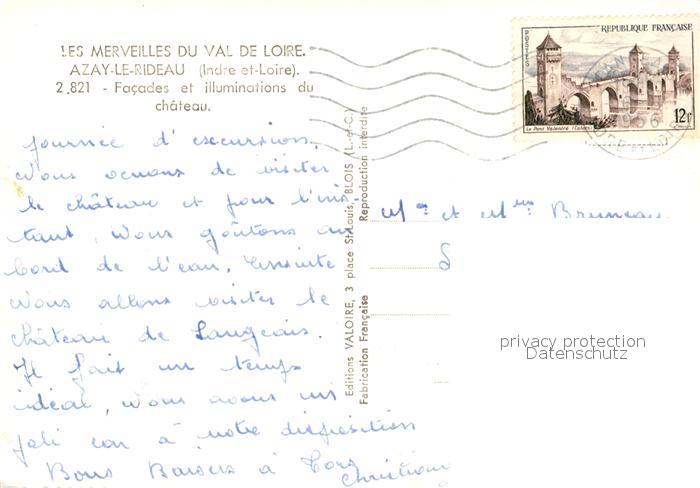 LES MERVEILLES DU VAL DE LOIRE.
AZAY-LE-RIDEAU (Indre-et-Loire).
2.821 - Façades et illuminations du
château.
journée d'excursion.
Nous venons de visiter
le château et pour l'ins
tant, nous goûtons au
bord de l'eau. Ensuite
nous allons visiter le
château de Langeais.
Il fait un temps
idéal, nous avons un
joli car à notre disposition
Bons Baisers à Tous
Christiane
Editions VALOIRE, 3 place St-Louis, BLOIS (L.-et-C.)
Fabrication Française Reproduction interdite
POSTES
REPUBLIQUE FRANÇAISE
12F
Le Pont Valentré (Cahors)
1956
Mr et Mme Bruneau
privacy protection
Datenschutz